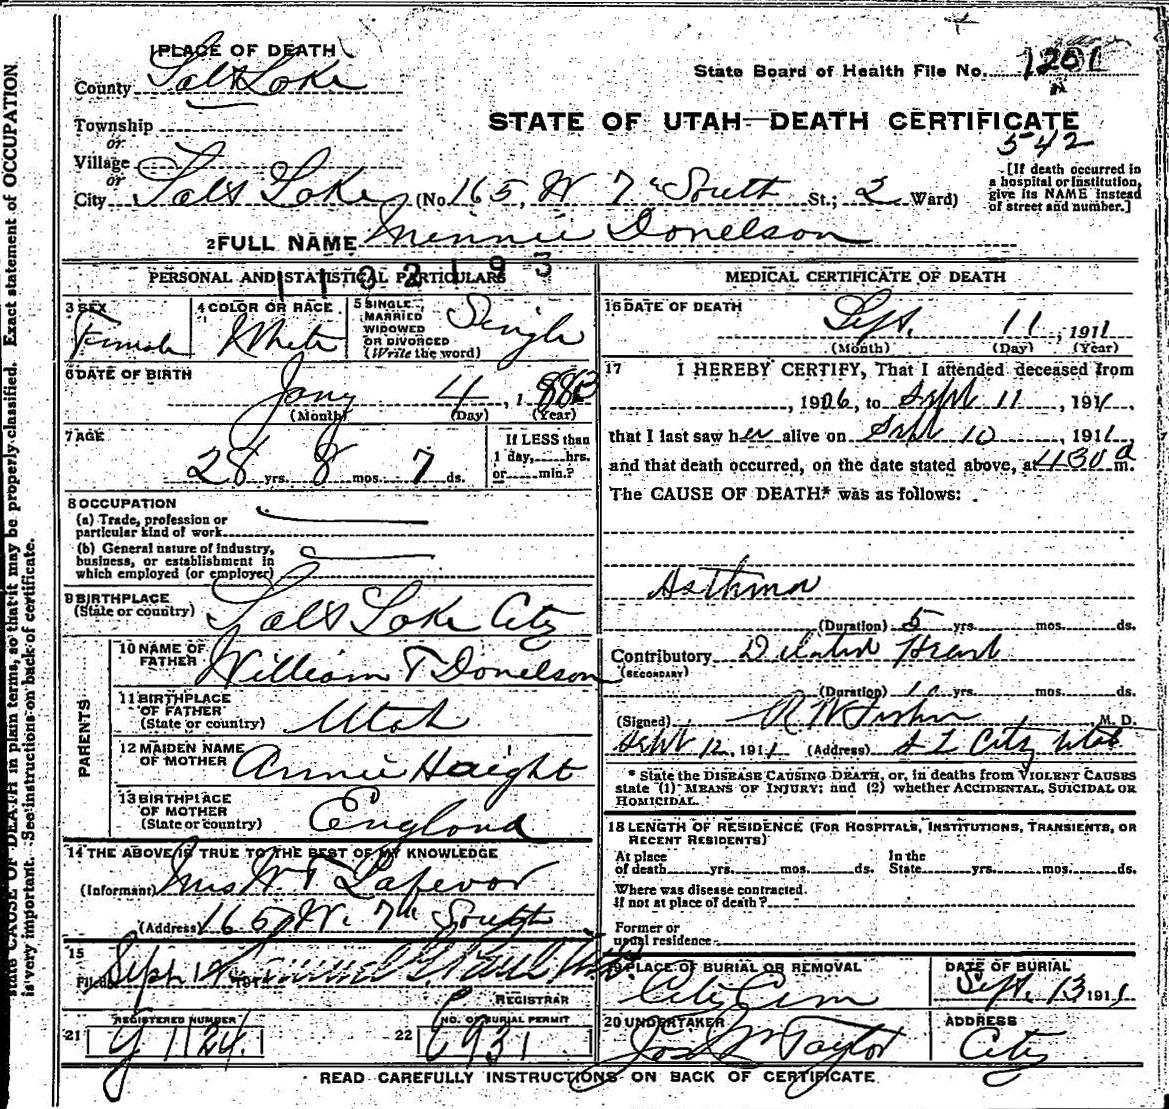 1 PLACE OF DEATH
County Salt Lake
State Board of Health File No. 1201
Township
or
Village
or
STATE OF UTAH—DEATH CERTIFICATE
542
City Salt Lake (No. 165, W 7" South St.; 2 Ward)
[If death occurred in
a hospital or institution,
give its NAME instead
of street and number.]
2 FULL NAME Minnie Donelson
1102193
PERSONAL AND STATISTICAL PARTICULARS
3 SEX
Female
4 COLOR OR RACE
White
5 SINGLE
MARRIED
WIDOWED
OR DIVORCED
(Write the word)
Single
6 DATE OF BIRTH
Jany 4, 1883
(Month) (Day) (Year)
7 AGE
28 yrs. 8 mos. 7 ds.
If LESS than
1 day, hrs.
or min.?
8 OCCUPATION
(a) Trade, profession or
particular kind of work
(b) General nature of industry,
business, or establishment in
which employed (or employer)
9 BIRTHPLACE
(State or country)
Salt Lake City
PARENTS
10 NAME OF
FATHER
William T Donelson
11 BIRTHPLACE
OF FATHER
(State or country)
Utah
12 MAIDEN NAME
OF MOTHER
Annie Haight
13 BIRTHPLACE
OF MOTHER
(State or country)
England
14 THE ABOVE IS TRUE TO THE BEST OF MY KNOWLEDGE
(Informant) Mrs W T Lafevor
(Address) 165 W. 7th South
15
Filed Sept 191
REGISTRAR
21
REGISTERED NUMBER
1124
22
NO. OF BURIAL PERMIT
E931
MEDICAL CERTIFICATE OF DEATH
16 DATE OF DEATH
Sept. 11, 1911
(Month) (Day) (Year)
17 I HEREBY CERTIFY, That I attended deceased from
, 1906, to Sept 11, 1911,
that I last saw her alive on Sept 10, 1911,
and that death occurred, on the date stated above, at 430 a m.
The CAUSE OF DEATH* was as follows:
Asthma
(Duration) 5 yrs. mos. ds.
Contributory Dilated Heart
(SECONDARY)
(Duration) 10 yrs. mos. ds.
(Signed) R W Fisher M. D.
Sept 12, 1911 (Address) S L City Utah
* State the DISEASE CAUSING DEATH, or, in deaths from VIOLENT CAUSES
state (1) MEANS OF INJURY; and (2) whether ACCIDENTAL, SUICIDAL OR
HOMICIDAL.
18 LENGTH OF RESIDENCE (FOR HOSPITALS, INSTITUTIONS, TRANSIENTS, OR
RECENT RESIDENTS)
At place
of death yrs. mos. ds.
In the
State yrs. mos. ds.
Where was disease contracted
if not at place of death?
Former or
usual residence
19 PLACE OF BURIAL OR REMOVAL
City Cem
DATE OF BURIAL
Sept. 13 1911
20 UNDERTAKER
Jos Wm Taylor
ADDRESS
City
READ CAREFULLY INSTRUCTIONS ON BACK OF CERTIFICATE
state CAUSE OF DEATH in plain terms, so that it may be properly classified. Exact statement of OCCUPATION
is very important. See instructions on back of certificate.